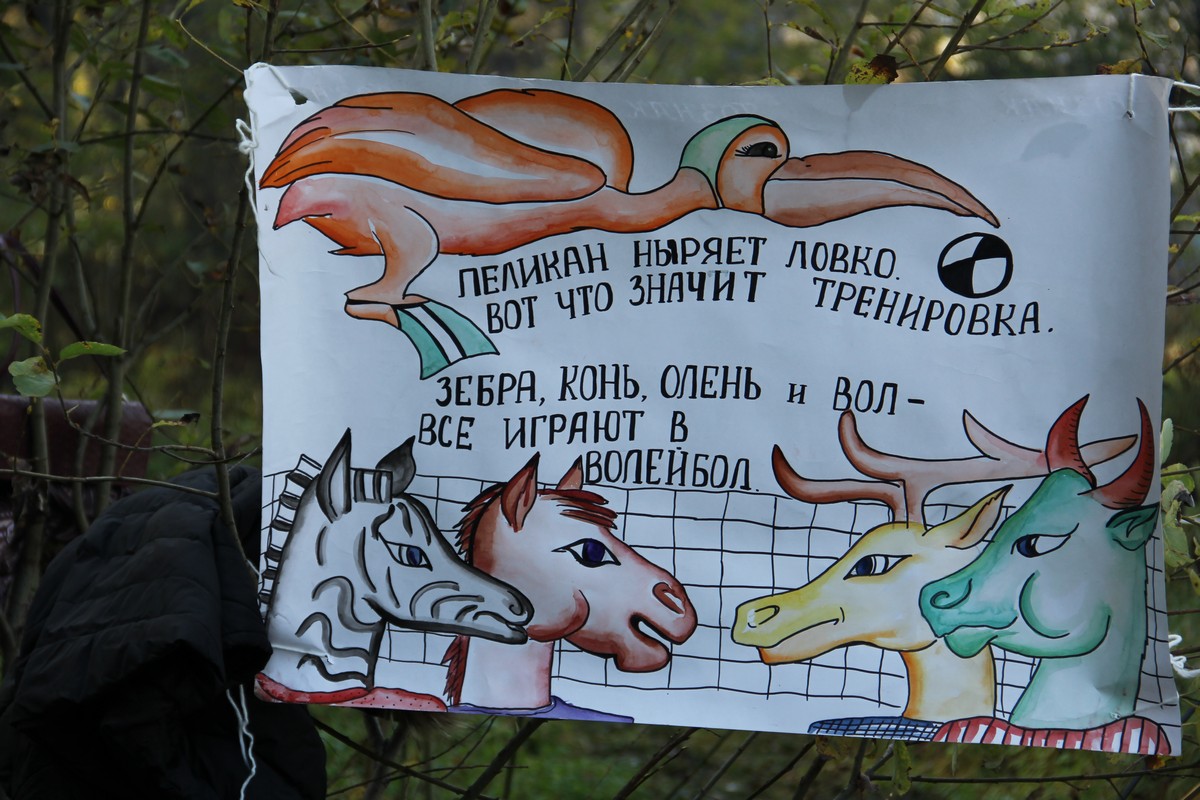 ПЕЛИКАН НЫРЯЕТ ЛОВКО.
ВОТ ЧТО ЗНАЧИТ ТРЕНИРОВКА.
ЗЕБРА, КОНЬ, ОЛЕНЬ и ВОЛ -
ВСЕ ИГРАЮТ В
ВОЛЕЙБОЛ.